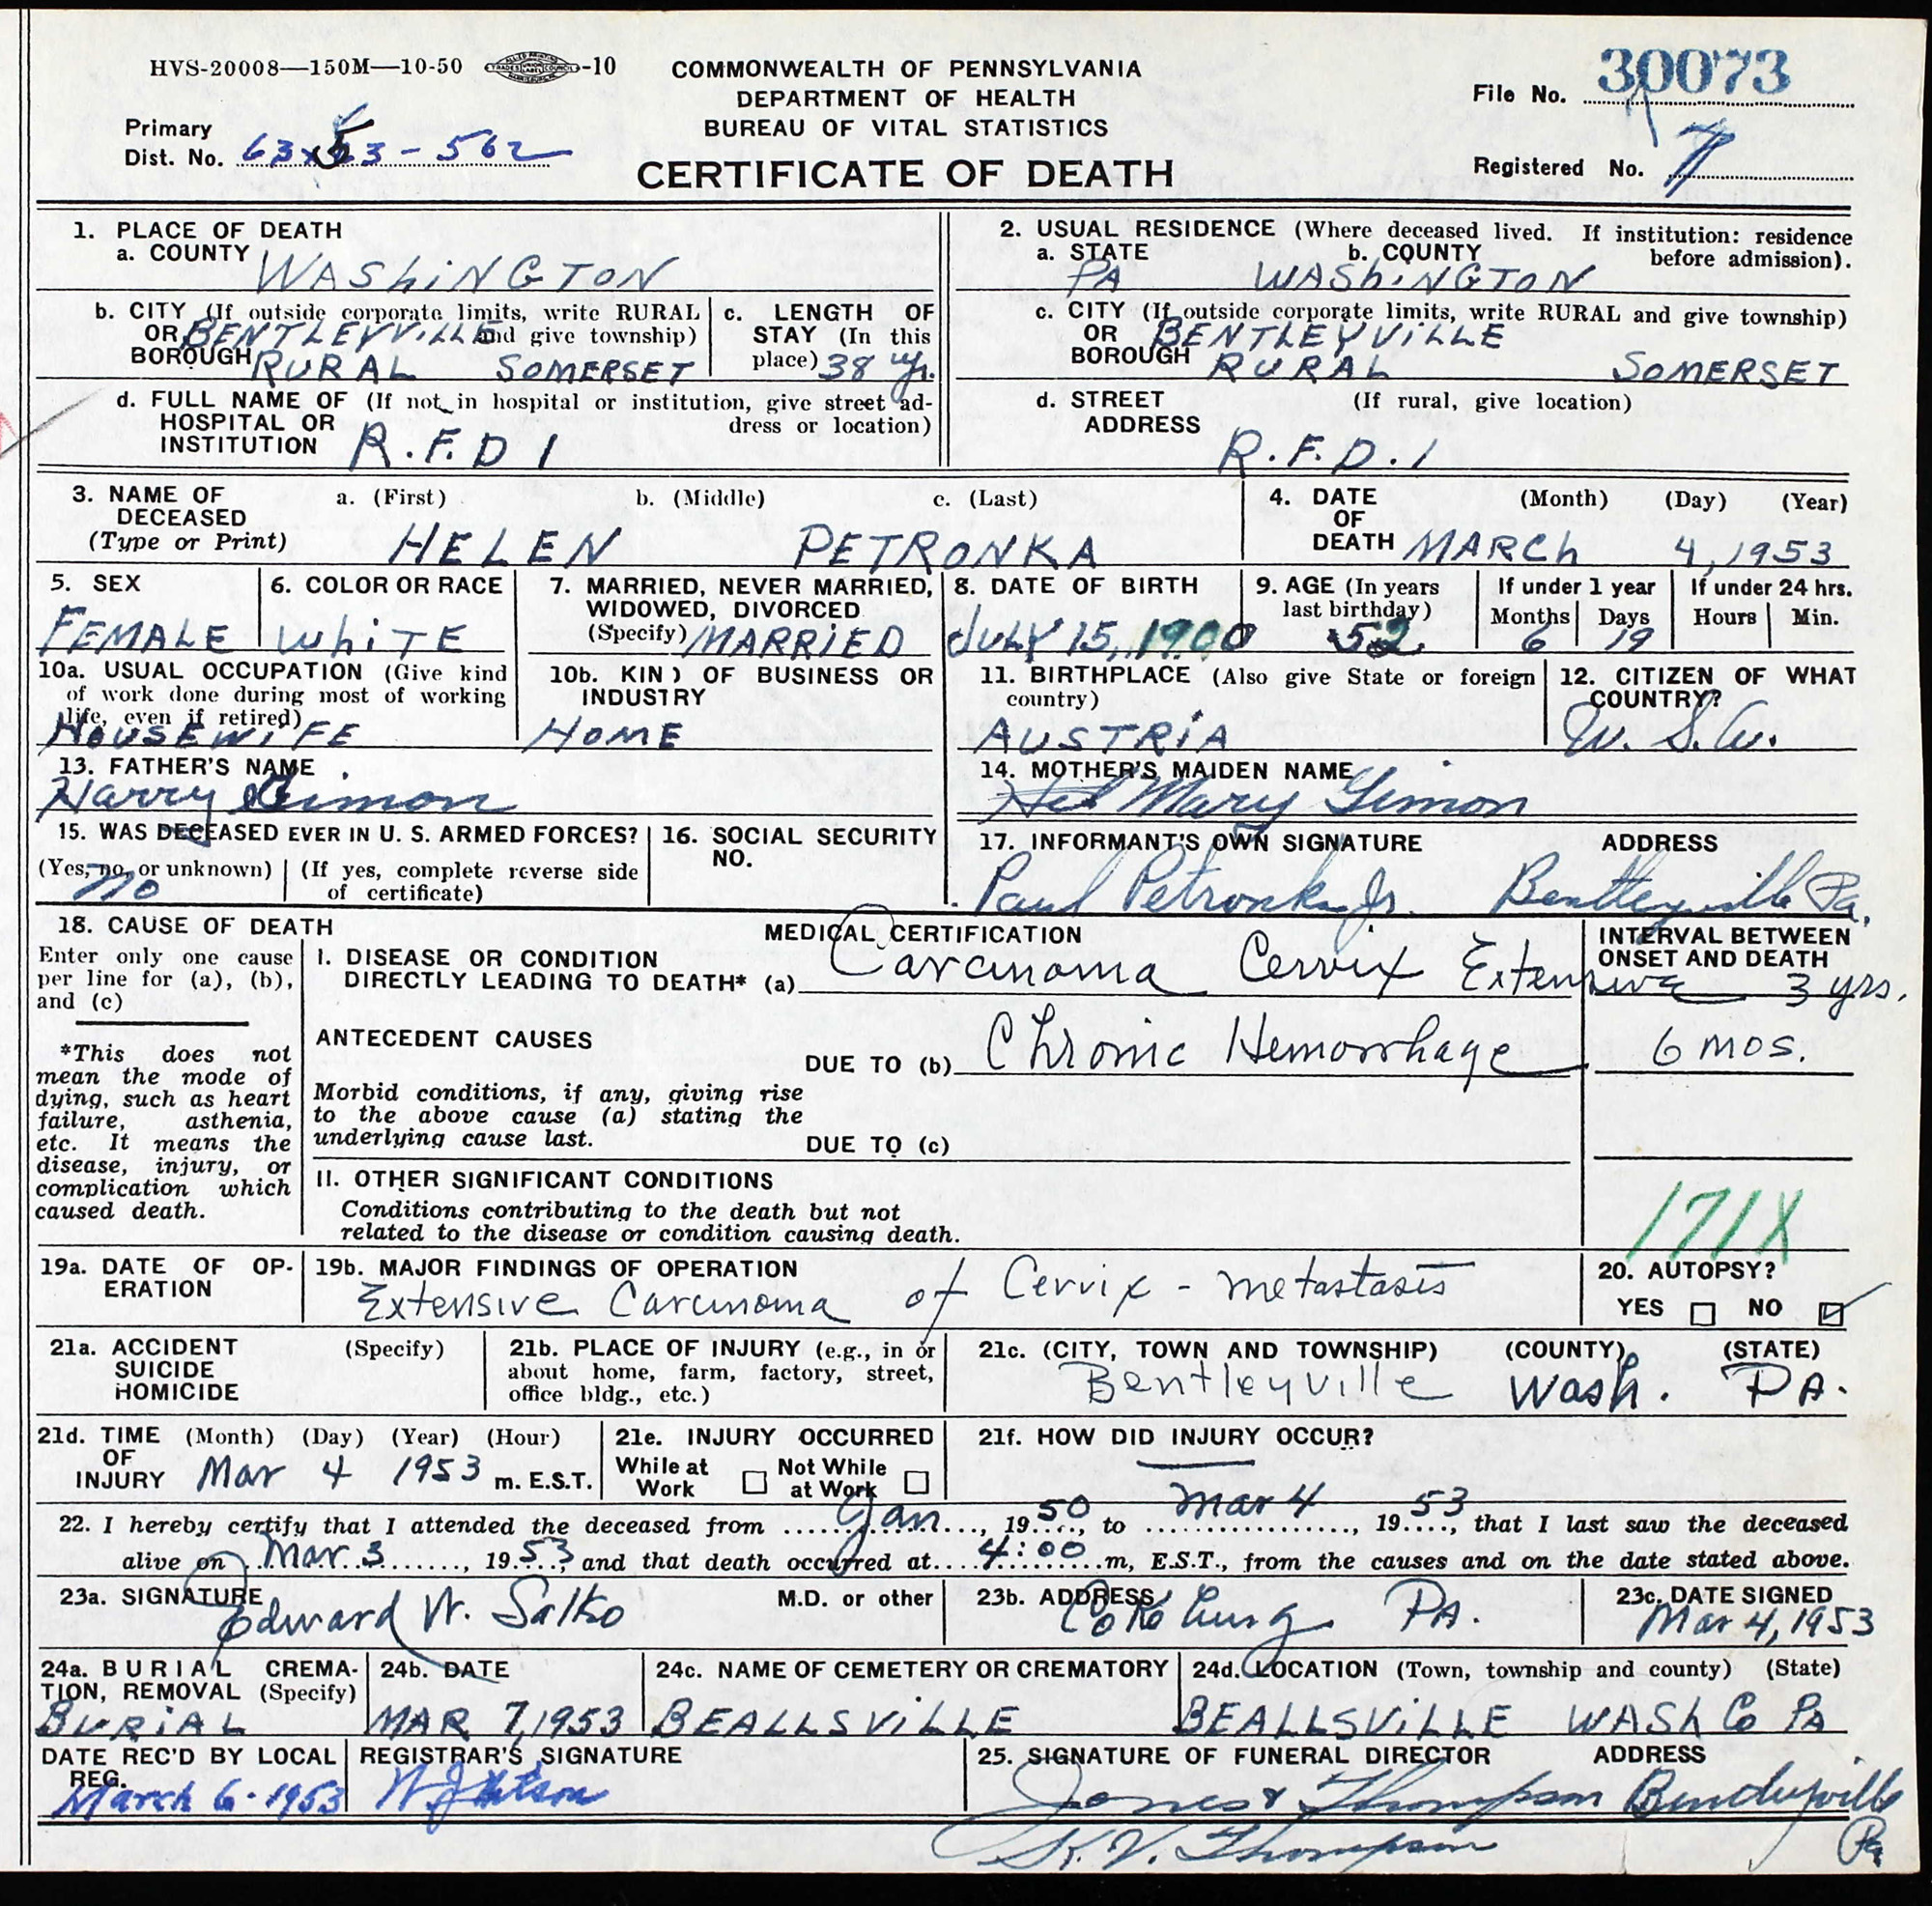 HVS-20008—150M—10-50 -10
COMMONWEALTH OF PENNSYLVANIA
DEPARTMENT OF HEALTH
BUREAU OF VITAL STATISTICS
CERTIFICATE OF DEATH
File No. 30073
Primary
Dist. No. 63x53-562
Registered No. 7
1. PLACE OF DEATH
a. COUNTY WAShiNGTON
b. CITY (If outside corporate limits, write RURAL
OR BENTLEYVILLE and give township)
BOROUGH RURAL SOMERSET
c. LENGTH OF
STAY (In this
place) 38 yr.
d. FULL NAME OF (If not in hospital or institution, give street ad-
HOSPITAL OR dress or location)
INSTITUTION R.F.D 1
2. USUAL RESIDENCE (Where deceased lived. If institution: residence
a. STATE b. COUNTY before admission).
PA WAShiNGTON
c. CITY (If outside corporate limits, write RURAL and give township)
OR BENTLEYViLLE
BOROUGH RURAL SOMERSET
d. STREET (If rural, give location)
ADDRESS
R.F.D.1
3. NAME OF a. (First) b. (Middle) c. (Last)
DECEASED
(Type or Print) HELEN PETRONKA
4. DATE (Month) (Day) (Year)
OF
DEATH MARCh 4, 1953
5. SEX
FEMALE
6. COLOR OR RACE
WhiTE
7. MARRIED, NEVER MARRIED,
WIDOWED, DIVORCED
(Specify) MARRiED
8. DATE OF BIRTH
JULY 15, 1900
9. AGE (In years
last birthday)
52
If under 1 year
Months Days
6 19
If under 24 hrs.
Hours Min.
10a. USUAL OCCUPATION (Give kind
of work done during most of working
life, even if retired)
HOUSEWiFE
10b. KIND OF BUSINESS OR
INDUSTRY
HOME
11. BIRTHPLACE (Also give State or foreign
country)
AUSTRiA
12. CITIZEN OF WHAT
COUNTRY?
U. S. A.
13. FATHER'S NAME
Harry Simon
14. MOTHER'S MAIDEN NAME
Mary Simon
15. WAS DECEASED EVER IN U. S. ARMED FORCES?
(Yes, no, or unknown) (If yes, complete reverse side
of certificate)
no
16. SOCIAL SECURITY
NO.
17. INFORMANT'S OWN SIGNATURE ADDRESS
Paul Petronka Jr. Bentleyville Pa.
18. CAUSE OF DEATH
Enter only one cause
per line for (a), (b),
and (c)
*This does not
mean the mode of
dying, such as heart
failure, asthenia,
etc. It means the
disease, injury, or
complication which
caused death.
MEDICAL CERTIFICATION
I. DISEASE OR CONDITION
DIRECTLY LEADING TO DEATH* (a) Carcinoma Cervix Extensive
INTERVAL BETWEEN
ONSET AND DEATH
3 yrs.
ANTECEDENT CAUSES
DUE TO (b) Chronic Hemorrhage 6 mos.
Morbid conditions, if any, giving rise
to the above cause (a) stating the
underlying cause last.
DUE TO (c)
II. OTHER SIGNIFICANT CONDITIONS
Conditions contributing to the death but not
related to the disease or condition causing death.
171X
19a. DATE OF OP-
ERATION
19b. MAJOR FINDINGS OF OPERATION
Extensive Carcinoma of Cervix - metastasis
20. AUTOPSY?
YES NO
21a. ACCIDENT (Specify)
SUICIDE
HOMICIDE
21b. PLACE OF INJURY (e.g., in or
about home, farm, factory, street,
office bldg., etc.)
21c. (CITY, TOWN AND TOWNSHIP) (COUNTY) (STATE)
Bentleyville Wash. PA.
21d. TIME (Month) (Day) (Year) (Hour)
OF
INJURY Mar 4 1953 m. E.S.T.
21e. INJURY OCCURRED
While at Not While
Work at Work
21f. HOW DID INJURY OCCUR?
22. I hereby certify that I attended the deceased from Jan, 1950, to Mar 4, 1953, that I last saw the deceased
alive on Mar 3, 1953, and that death occurred at 4:00 m, E.S.T., from the causes and on the date stated above.
23a. SIGNATURE M.D. or other
Edward W. Salko
23b. ADDRESS
Cokeburg PA.
23c. DATE SIGNED
Mar 4, 1953
24a. BURIAL CREMA-
TION, REMOVAL (Specify)
BURiAL
24b. DATE
MAR 7, 1953
24c. NAME OF CEMETERY OR CREMATORY
BEALLSViLLE
24d. LOCATION (Town, township and county) (State)
BEALLSViLLE WASh Co PA
DATE REC'D BY LOCAL
REG.
March 6-1953
REGISTRAR'S SIGNATURE
25. SIGNATURE OF FUNERAL DIRECTOR ADDRESS
Jones & Thompson
K. V. Thompson Pa